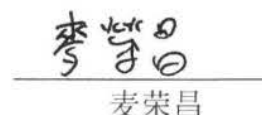 麥荣昌
麦荣昌